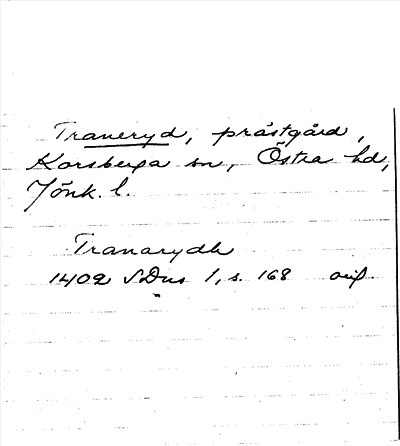 Traneryd, prästgård,
Korsberga sn, Östra hd,
Jönk. l.
Tranarydh
1402 SDns 1, s. 168 orig.